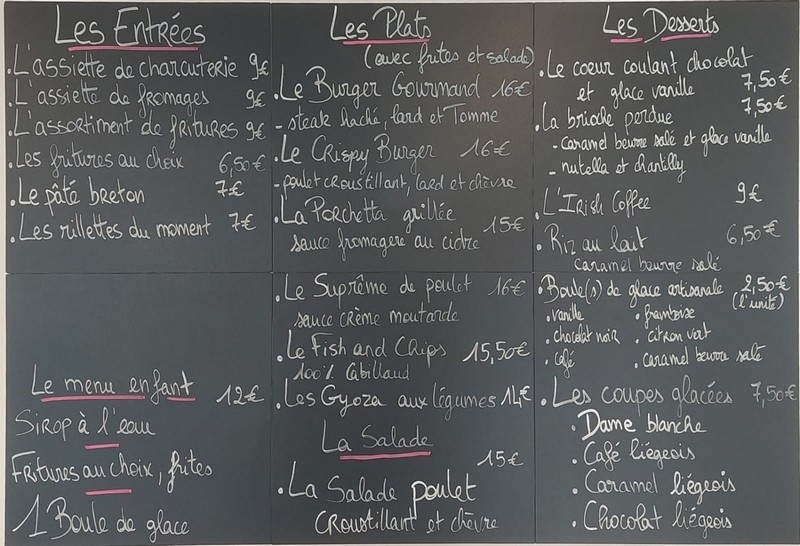 Les Entrées
.L'assiette de charcuterie 9€
.L'assiette de fromages 9€
.L'assortiment de fritures 9€
.Les fritures au choix 6,50€
.Le pâté breton 7€
.Les rillettes du moment 7€
Le menu enfant 12€
Sirop à l'eau
Fritures au choix, frites
1 Boule de glace
Les Plats
(avec frites et salade)
.Le Burger Gourmand 16€
- steak haché, lard et Tomme
.Le Crispy Burger 16€
- poulet croustillant, lard et chèvre
.La Porchetta grillée 15€
sauce fromagere au cidre
.Le Suprême de poulet 16€
sauce crème moutarde
.Le Fish and Chips 15,50€
100% Cabillaud
.Les Gyoza aux légumes 14€
La Salade
15€
.La Salade poulet
croustillant et chèvre
Les Desserts
.Le coeur coulant chocolat
et glace vanille 7,50€
.La brioche perdue 7,50€
- caramel beurre salé et glace vanille
- nutella et chantilly
.L'Irish Coffee 9€
.Riz au lait 6,50€
caramel beurre salé
.Boule(s) de glace artisanale 2,50€
(l'unité)
.vanille .framboise
.chocolat noir .citron vert
.café .caramel beurre salé
.Les coupes glacées 7,50€
.Dame blanche
.Café liégeois
.Caramel liégeois
.Chocolat liégeois